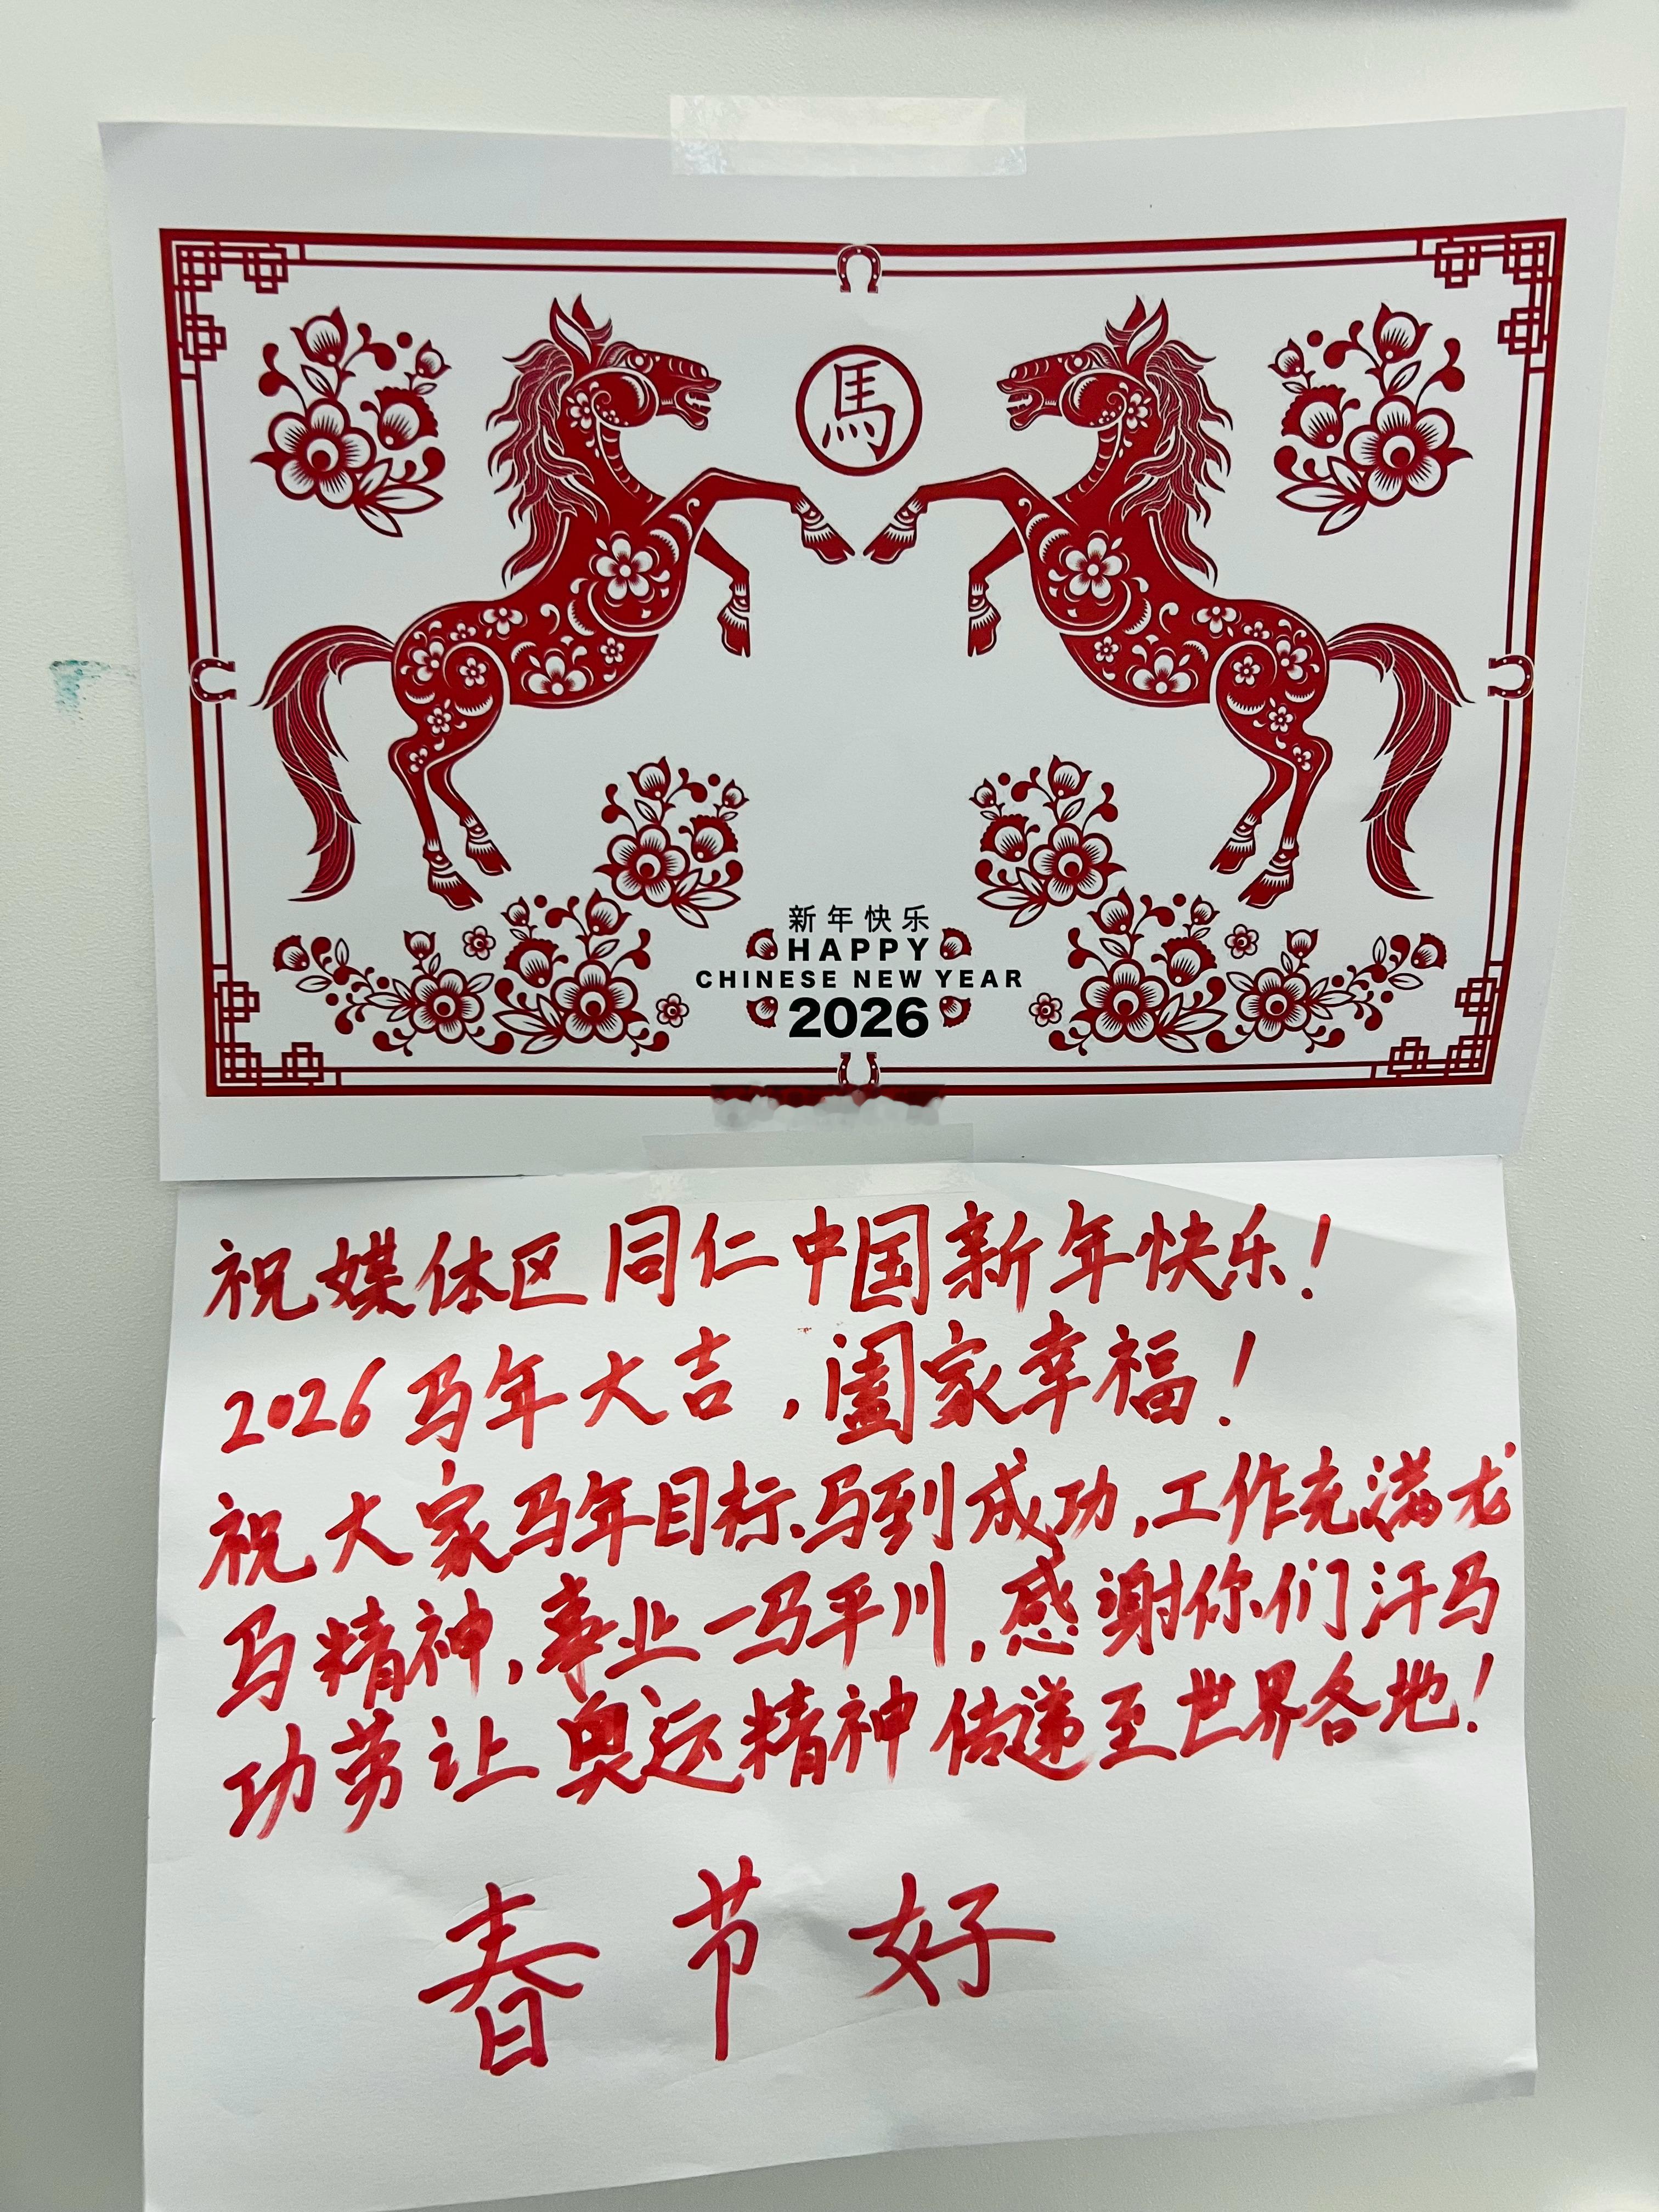 馬
新年快乐
HAPPY
CHINESE NEW YEAR
2026
祝媒体区同仁中国新年快乐！
2026马年大吉，阖家幸福！
祝大家马年目标马到成功，工作充满龙
马精神，事业一马平川，感谢你们汗马
功劳让奥运精神传递至世界各地！
春节好